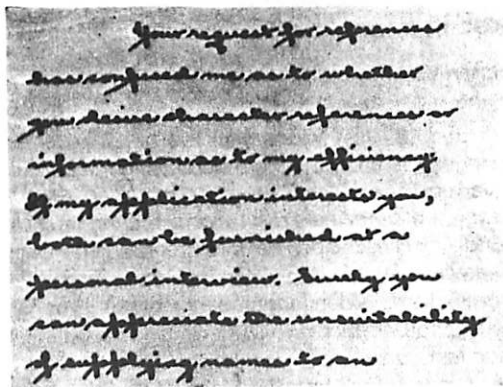 Your request for references
has confused me as to whether
you desire character references or
information as to my efficiency.
If my application interests you,
both can be furnished at a
personal interview. Surely you
can appreciate the unsuitability
of supplying names to an